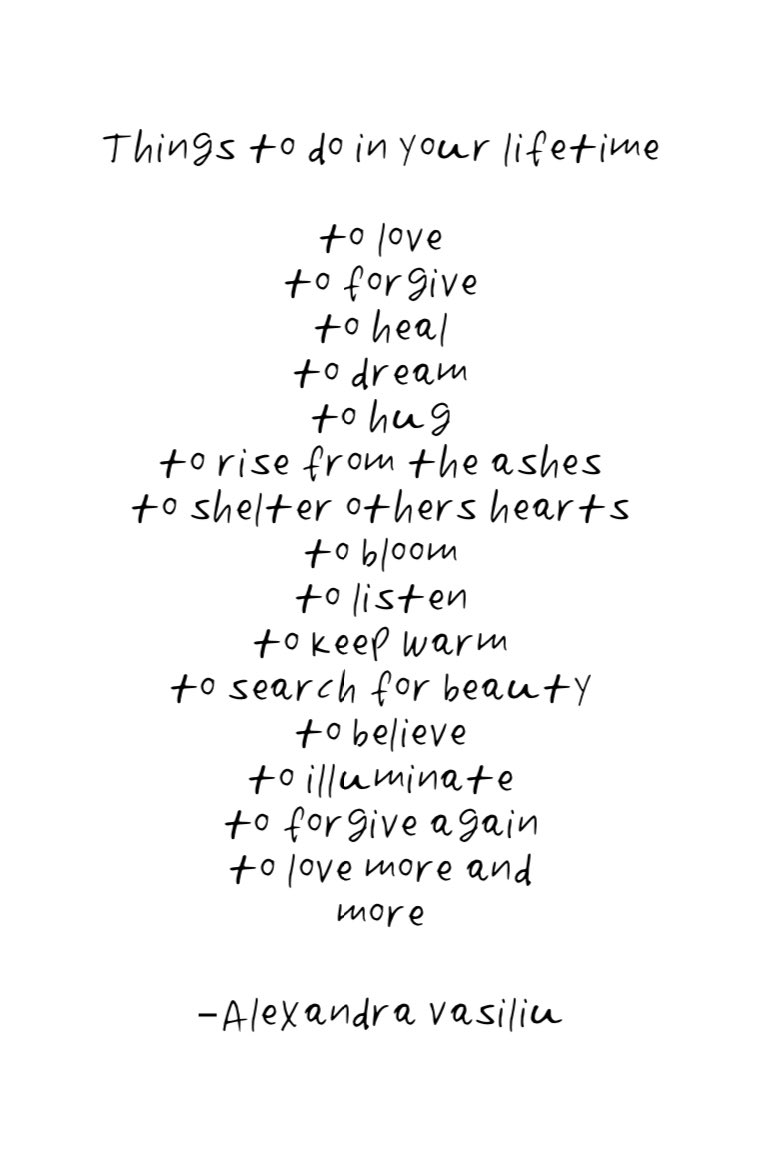 Things to do in your lifetime
to love
to forgive
to heal
to dream
to hug
to rise from the ashes
to shelter others hearts
to bloom
to listen
to keep warm
to search for beauty
to believe
to illuminate
to forgive again
to love more and
more
-Alexandra vasiliu